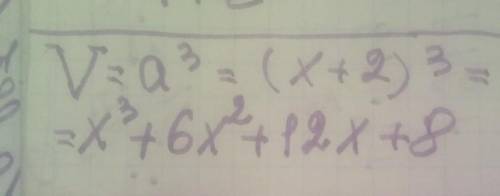 V = a³ = (x+2)³ =
= x³ + 6x² + 12x + 8